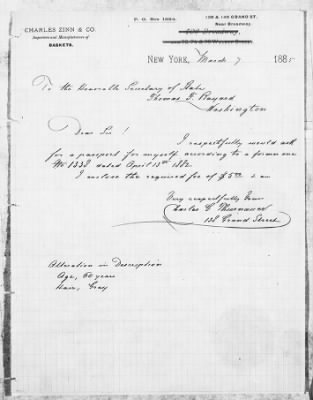 P. O. Box 1894.
CHARLES ZINN & CO.
Importers and Manufacturers of
BASKETS.
138 & 140 GRAND ST.
Near Broadway
NEW YORK, March 7 1885
To the Honorable Secretary of State
Thomas F. Bayard
Washington
Dear Sir!
I respectfully would ask
for a passport for myself according to a former one
No 1338 dated April 13th 1882.
I enclose the required fee of $5.00 & am
Very respectfully Your
Charles C.
138 Grand Street
Alteration in Description
Age, 60 years
Hair, Gray